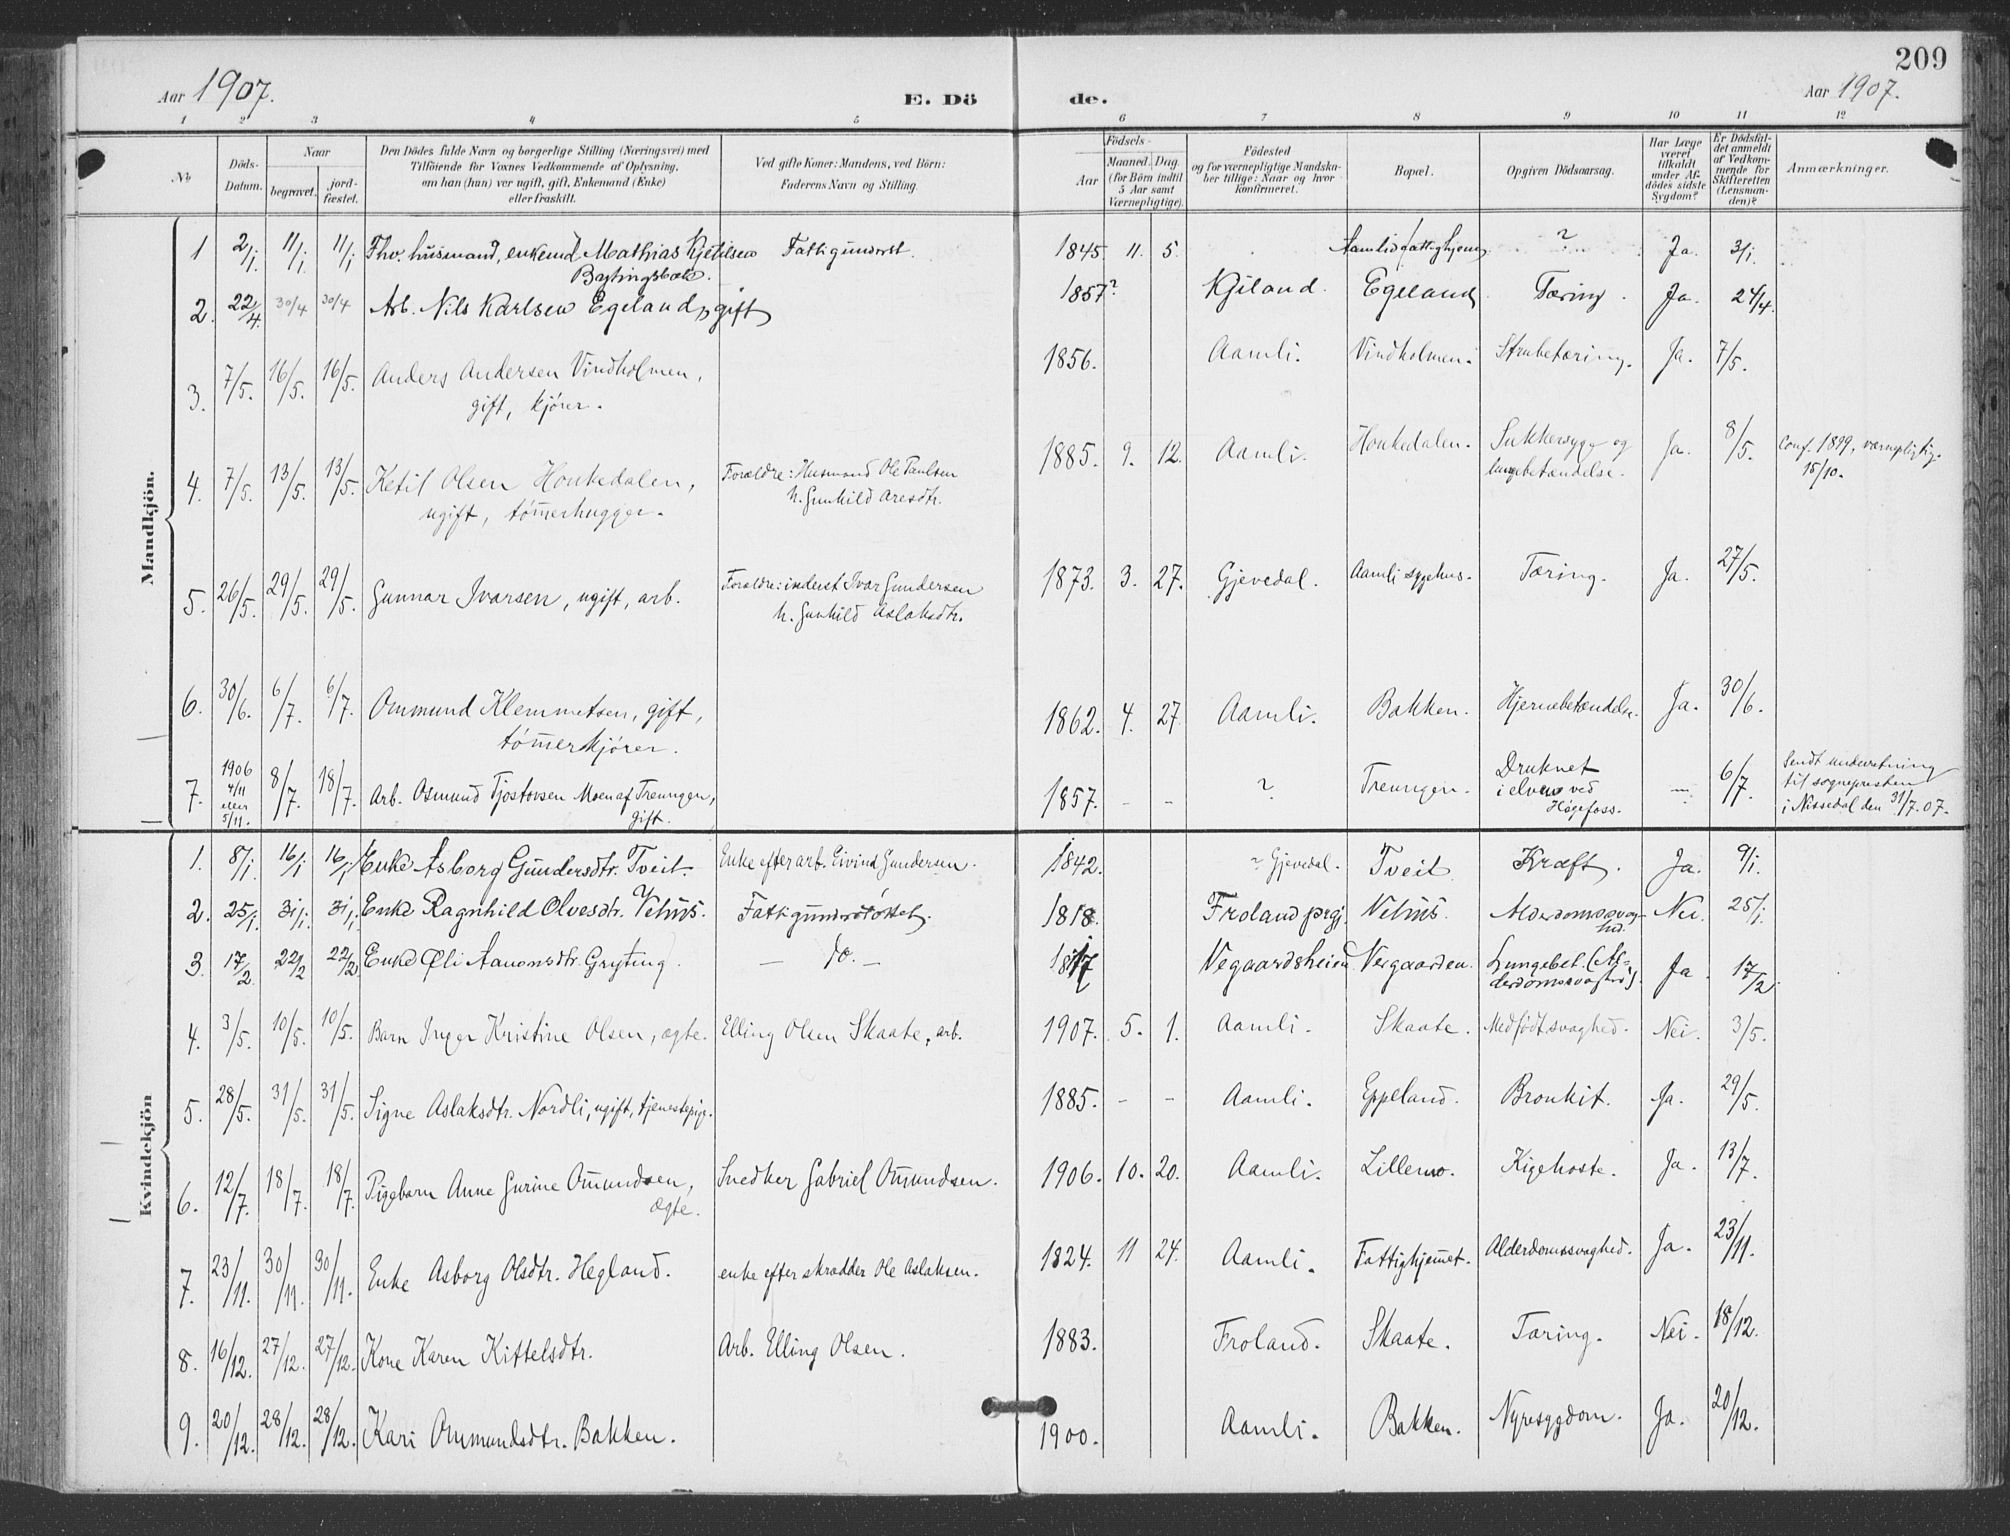 209
Aar 1907.
E. Dö
de.
Aar 1907.
1 2 3 4 5 6 7 8 9 10 11 12
No
Döds-
Datum.
Naar
begravet.
jord-
fæstet.
Den Dödes fulde Navn og borgerlige Stilling (Næringsvei) med
Tilföiende for Voxnes Vedkommende af Oplysning,
om han (hun) ver ugift, gift, Enkemand (Enke)
eller fraskilt.
Ved gifte Koner: Mandens, ved Börn:
Faderens Navn og Stilling.
Födsels-
Aar
Maaned. Dag.
(for Börn indtil
5 Aar samt
Værnepligtige).
Födested
og for værnepligtige Mandska-
ber tillige: Naar og hvor
konfirmeret.
Bopæl.
Opgiven Dödsaarsag.
Har Læge
været
tilkaldt
under Af-
dödes sidste
Sygdom?
Er Dödsfal-
det anmeldt
af Vedkom-
mende for
Skifteretten
(Lensman-
den)?
Anmærkninger.
Mandkjön.
1 2/1. 11/1 11/1 Fhv. husmand, enkemd Mathias Kjetilsen Fattigunderst. 1845 11. 5. Aamli fattighjem ? Ja. 3/1.
Bytingsbæk.
2. 22/4. 30/4 30/4 Arb. Nils Karlsen Egeland, gift 1857? Kjiland. Egeland Tæring. Ja. 24/4.
3. 7/5. 16/5. 16/5. Anders Andersen Vindholmen, 1856. Aamli. Vindholmen. Strubetæring. Ja. 7/5.
gift, kjörer.
4. 7/5. 13/5. 13/5. Ketil Olsen Honkedalen, Forældre: Husmand Ole Paulsen 1885. 9. 12. Aamli. Honkedalen. Sukkersyge og Ja. 8/5. Conf. 1899, værnepligtig.
ugift, tömerhugger. h. Gunhild Aresdtr. lungebetændelse. 15/10.
5. 26/5. 29/5. 29/5. Gunnar Ivarsen, ugift, arb. Forældre: inderst Ivar Gundersen 1873. 3. 27. Gjevedal. Aamli sygehus. Tæring. Ja. 27/5.
h. Gunhild Aslaksdtr.
6. 30/6. 6/7. 6/7. Ommund Klemmetsen, gift, 1862. 4. 27. Aamli. Bakken. Hjernebetændelse. Ja. 30/6.
tömerkjörer.
7. 1906 4/11 eller 5/11. 8/7. 18/7. Arb. Osmund Tjostovsen Moen af Treungen, 1857. – – ? Treungen. Druknet – 6/7. Sendt underretning
gift. i elven ved til sognepresten
Högefoss. i Nissedal den 31/7. 07.
Kvindekjön
1. 8/1. 16/1 16/1 Enke Asborg Gundersdtr. Tveit. Enke efter arb. Eivind Gundersen. 1842. ? Gjevedal. Tveit. Kræft. Ja. 9/1.
2. 25/1. 31/1. 31/1. Enke Ragnhild Olvesdtr. Vehus. Fattigunderstöttet. 1818. Froland prgj. Vehus. Alderdomssvag- Nei. 25/1.
hed.
3. 17/2. 22/2 22/2 Enke Øli Aanonsdtr. Gryting. – Do. – 1817 Vegaardsheien Vergaarden. Lungebet. (Al- Ja. 17/2.
derdomssvaghed).
4. 3/5. 10/5. 10/5. Barn Inger Kristine Olsen, ægte. Elling Olsen Skaate, arb. 1907. 5. 1. Aamli. Skaate. Medfödt svaghed. Nei. 3/5.
5. 28/5. 31/5. 31/5. Signe Aslaksdtr. Nordli, ugift, tjenestepige. 1885. – – Aamli. Eppeland. Bronkit. Ja. 29/5.
6. 12/7. 18/7. 18/7. Pigebarn Anne Gurine Omundsen, Snedker Gabriel Omundsen. 1906. 10. 20. Aamli. Lillemo. Kigehoste. Ja. 13/7.
ægte.
7. 23/11. 30/11. 30/11. Enke Asborg Olsdtr. Hegland. enke efter skrædder Ole Aslaksen. 1824. 11 24. Aamli. Fattighjemet. Alderdomssvaghed. Ja. 23/11.
8. 16/12. 27/12. 27/12. Kone Karen Kittelsdtr. Arb. Elling Olsen. 1883. Froland. Skaate. Tæring. Nei. 18/12.
9. 20/12. 28/12. 28/12. Kari Ommundsdtr. Bakken. 1900. Aamli. Bakken. Nyresygdom. Ja. 20/12.